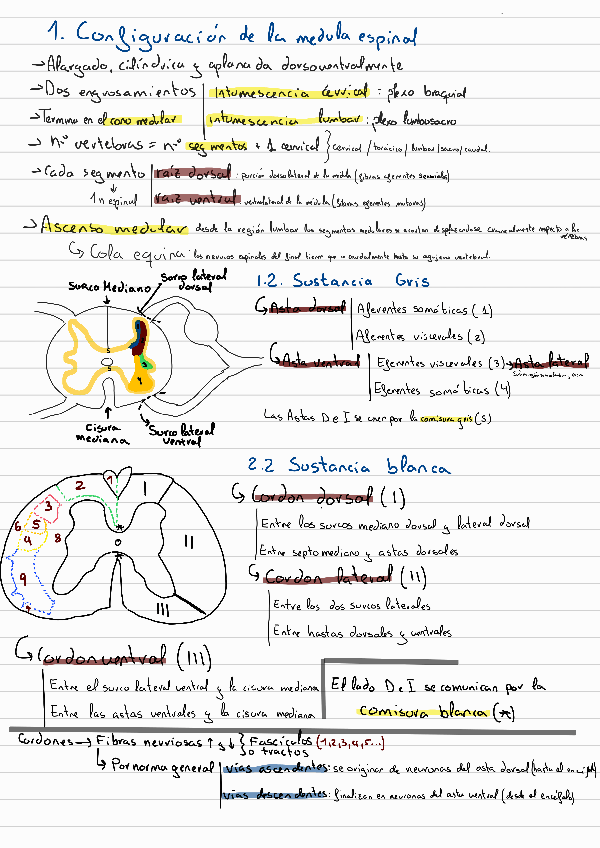 1. Configuración de la medula espinal
→ Alargado, cilíndrica y aplanada dorsoventralmente
→ Dos engrosamientos Intumescencia cervical : plexo braquial
→ Termina en el cono medular intumescencia lumbar : plexo lumbosacro
→ n.º vertebras = n.º segmentos + 1 cervical } cervical / torácico / lumbar / sacro / caudal.
→ Cada segmento raíz dorsal : porción dorsolateral de la médula (fibras aferentes sensoriales)
1 n espinal raíz ventral ventrolateral de la médula (fibras eferentes motoras)
→ Ascenso medular desde la región lumbar los segmentos medulares se acortan desplazándose cranealmente respecto a las vértebras
↳ Cola equina: los nervios espinales del final tienen que ir caudalmente hasta su agujero vertebral.
1.2. Sustancia Gris
Surco Mediano
Surco lateral dorsal
↳ Asta dorsal Aferentes somáticas (1)
Aferentes viscerales (2)
↳ Asta ventral Eferentes viscerales (3) → Asta lateral
Eferentes somáticas (4)
Las Astas D e I se unen por la comisura gris (5)
5
5
4
cisura mediana
Surco lateral ventral
2.2 Sustancia blanca
↳ Cordon dorsal (I)
Entre los surcos mediano dorsal y lateral dorsal
Entre septo mediano y astas dorsales
↳ Cordon lateral (II)
Entre los dos surcos laterales
Entre hastas dorsales y ventrales
1
2
3
6
5
4
8
9
7
I
II
III
*
*
↳ Cordon ventral (III)
Entre el surco lateral ventral y la cisura mediana
Entre las astas ventrales y la cisura mediana
El lado D e I se comunican por la
comisura blanca (*)
Cordones → Fibras nerviosas ↑ y ↓ } Fascículos (1,2,3,4,5...)
o tractos
↳ Por norma general vías ascendentes: se originan de neuronas del asta dorsal (hasta el encéfalo)
vías descendentes: finalizan en neuronas del asta ventral (desde el encéfalo)